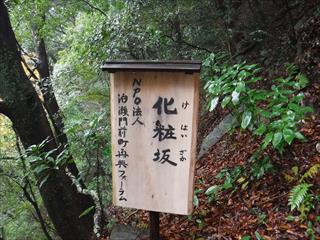 化粧坂
け はい ざか
NPO法人
泊瀬門前町再興フォーラム